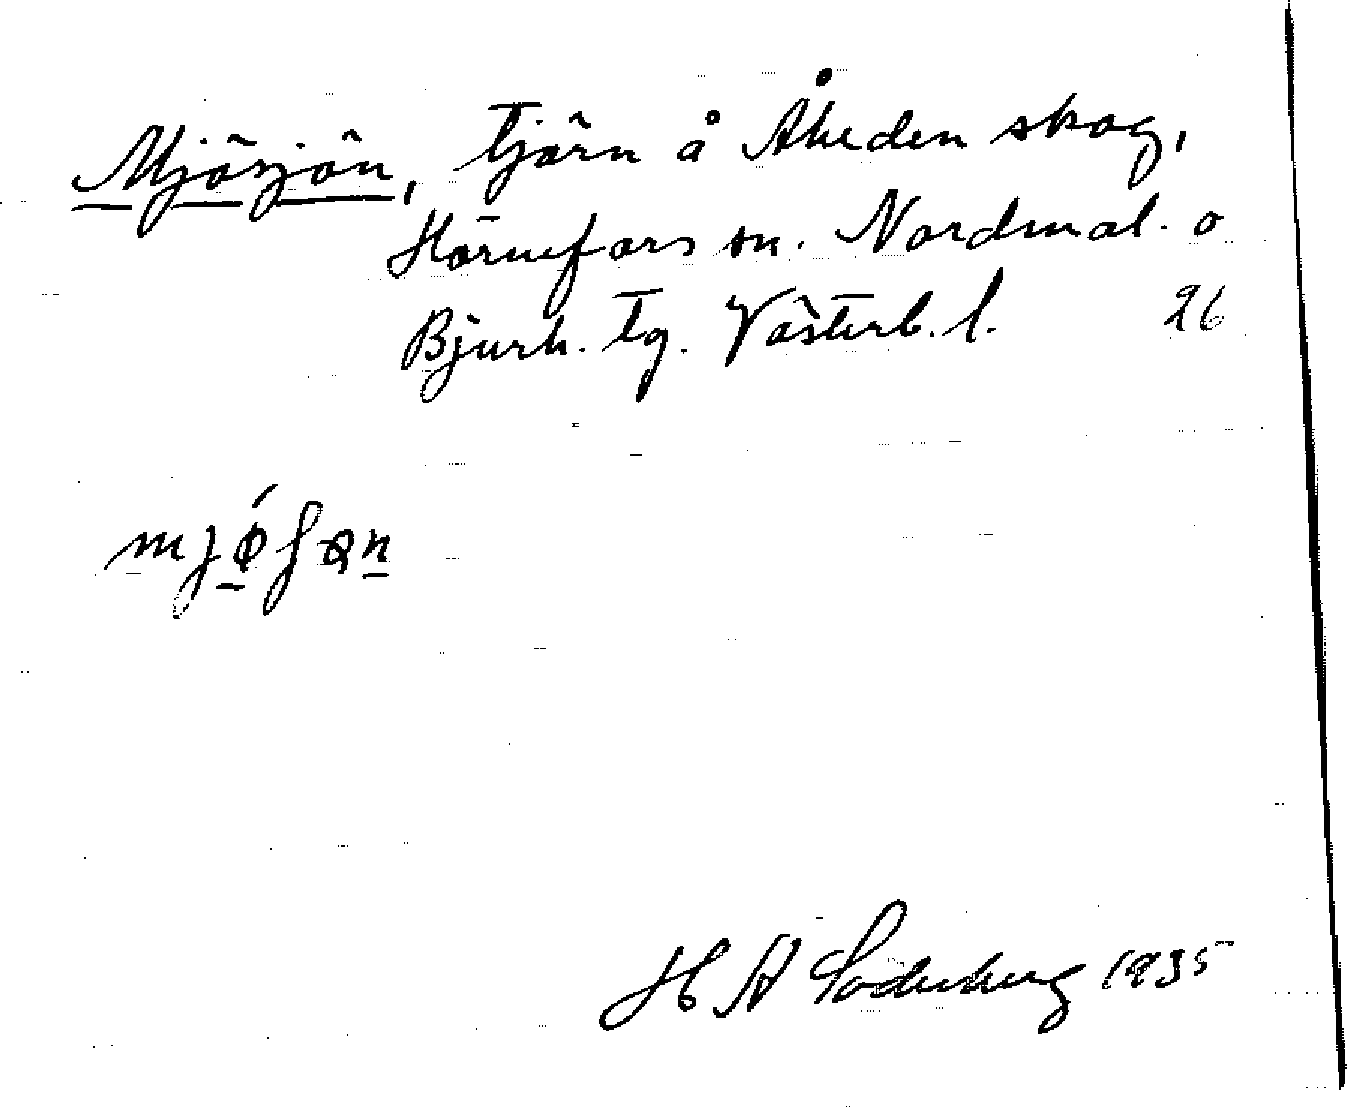 Mjösjön, tjärn å Åheden skog,
Hörnefors sn. Nordmal. o
Bjurh. tg. Västerb. l. 26
H A Söderberg 1935